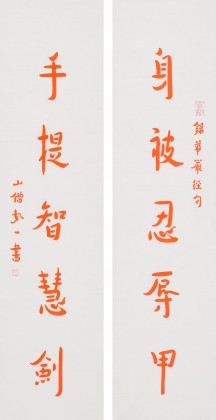 錄華嚴經句
身被忍辱甲
手提智慧劍
山僧一書